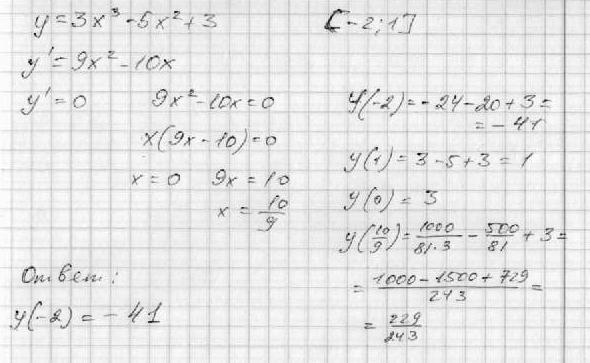 y = 3x³ - 5x² + 3
[-2; 1]
y' = 9x² - 10x
y' = 0 9x² - 10x = 0
x(9x - 10) = 0
x = 0 9x = 10
x = 10/9
y(-2) = -24 - 20 + 3 =
= -41
y(1) = 3 - 5 + 3 = 1
y(0) = 3
y(10/9) = 1000/81·3 - 500/81 + 3 =
= 1000 - 1500 + 729/243 =
= 229/243
Ответ:
y(-2) = -41